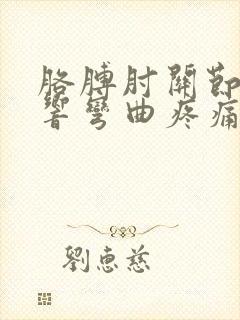 胳膊肘關節
響彎曲疼痛
劉惠慈